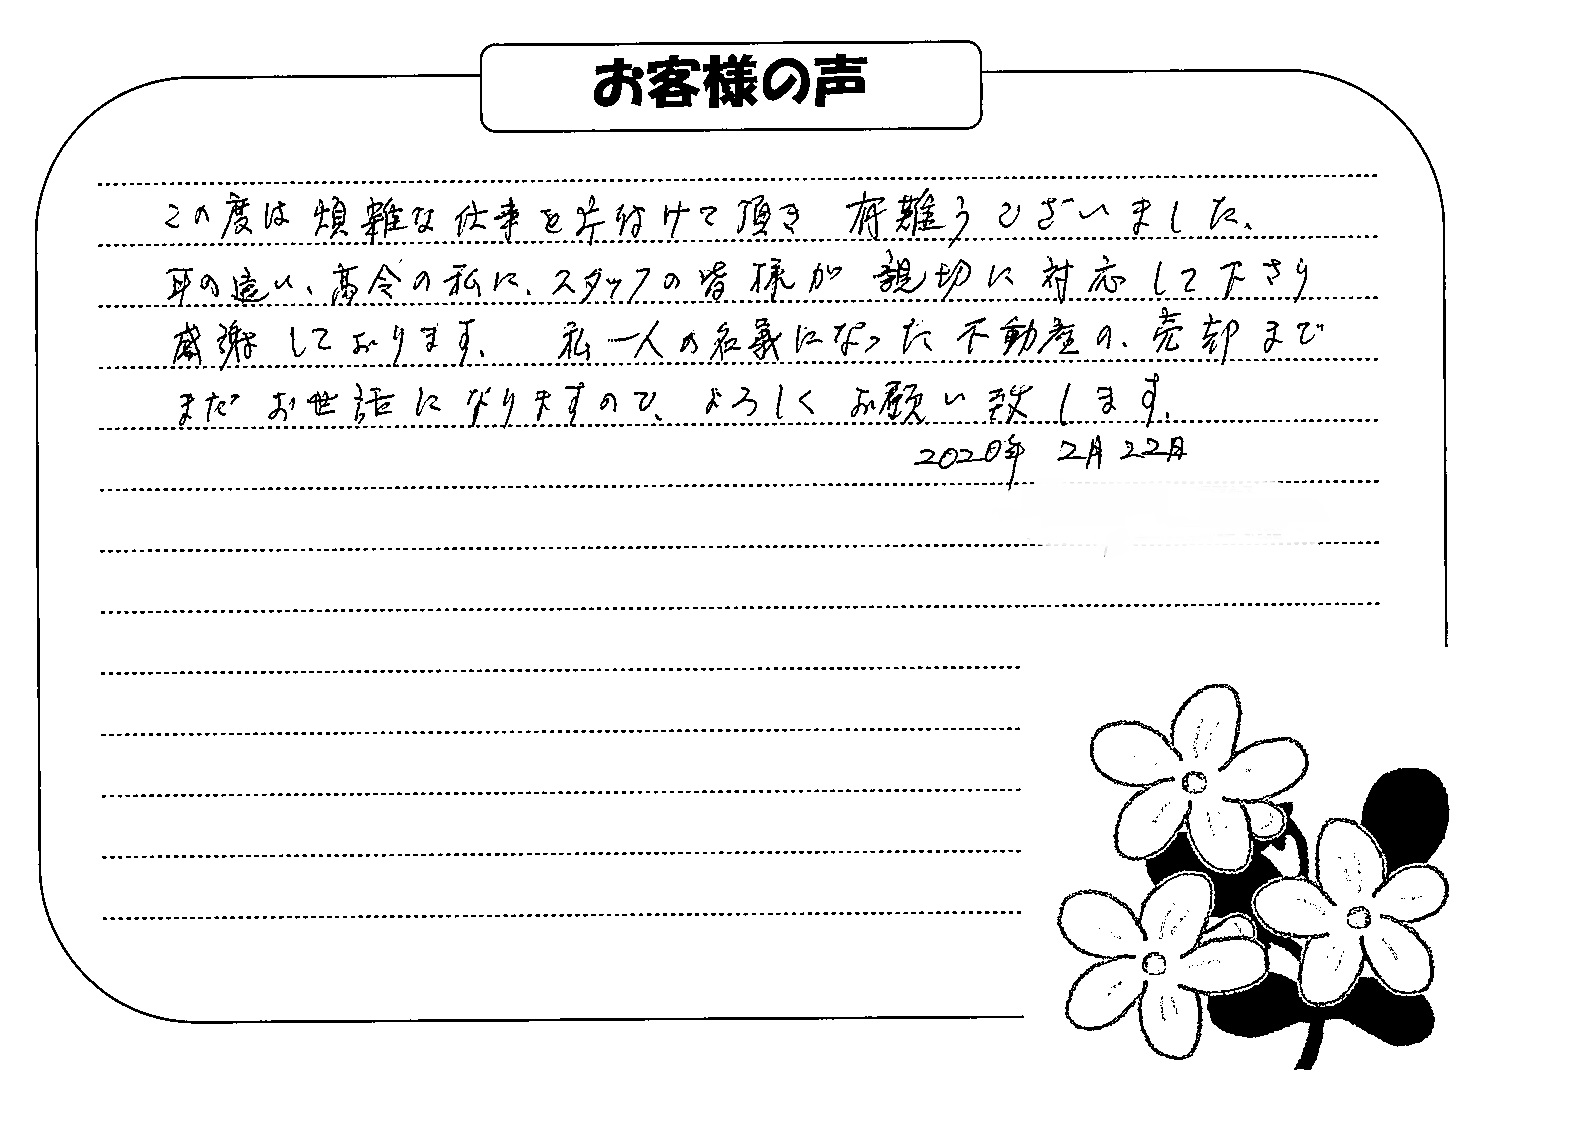 お客様の声
この度は煩雑な仕事を片付けて頂き 有難うございました。
耳の遠い、高令の私に、スタッフの皆様が親切に対応して下さり
感謝しております。 私一人の名義になった不動産の、売却まで
まだお世話になりますので、よろしくお願い致します。
2020年 2月22日